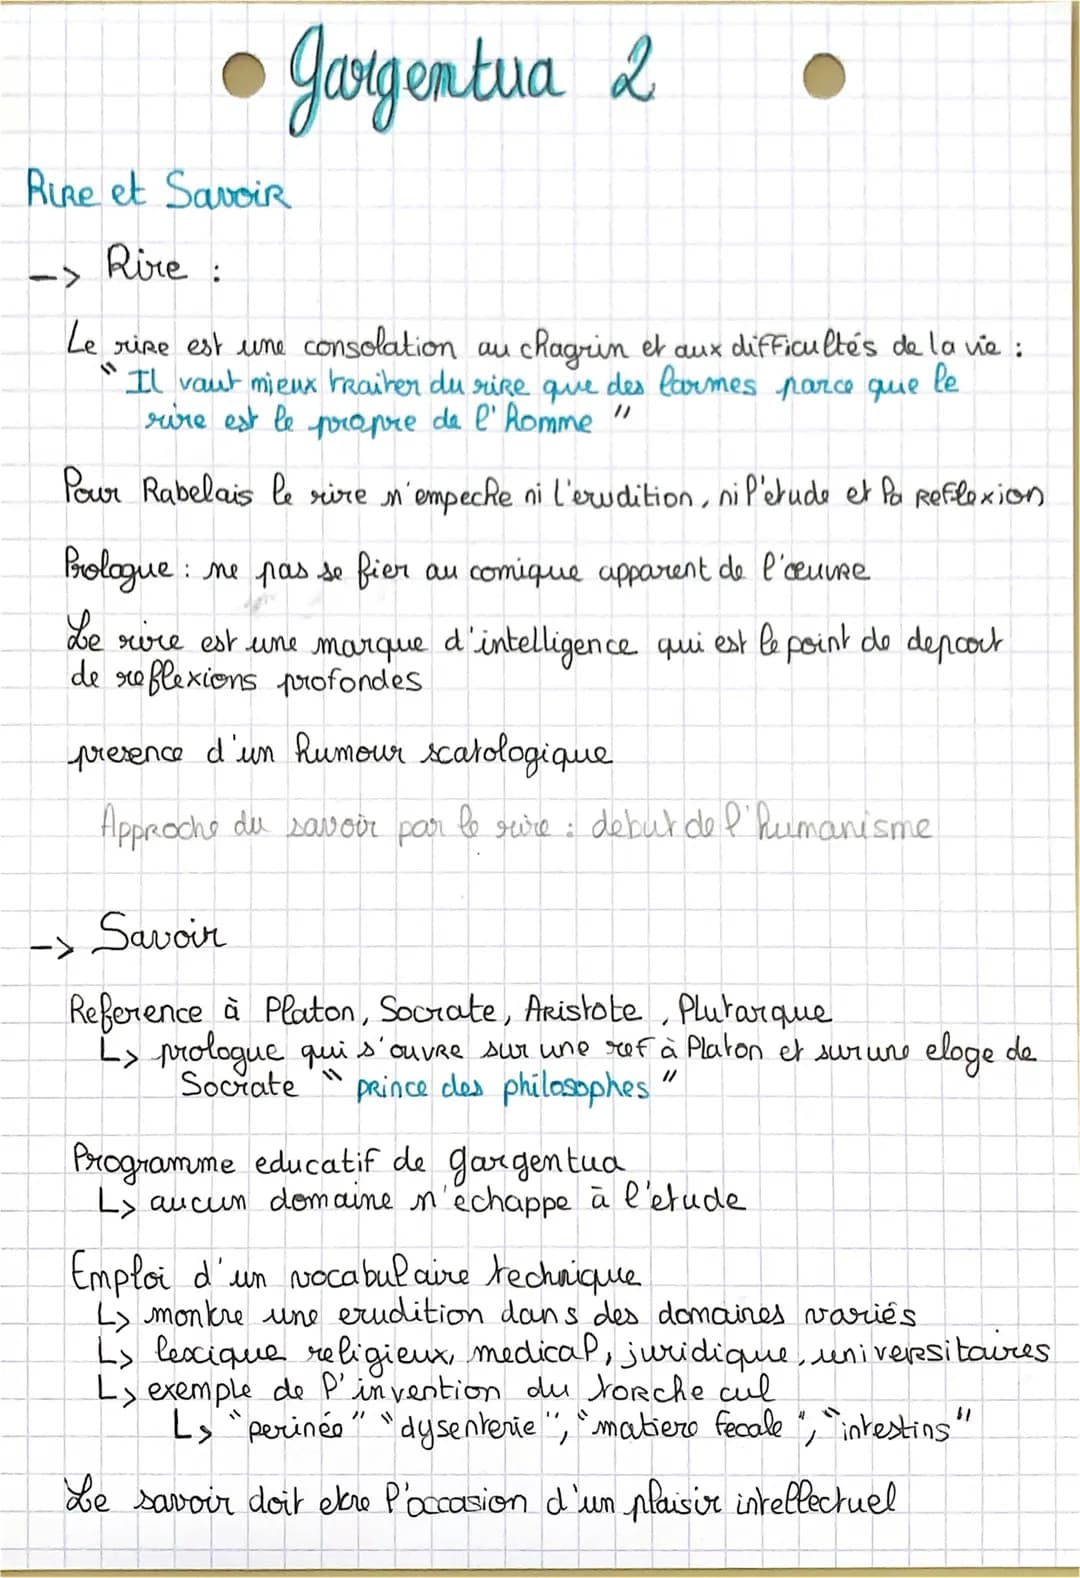 Gargentua 2
Rire et Savoir
-> Rire :
Le rire est une consolation au chagrin et aux difficultés de la vie :
"Il vaut mieux traiter du rire que des larmes parce que le
rire est le propre de l'homme"
Pour Rabelais le rire n'empeche ni l'erudition, ni l'etude et la reflexion
Prologue : ne pas se fier au comique apparent de l'œuvre
Le rire est une marque d'intelligence qui est le point de depart
de reflexions profondes
presence d'un humour scatologique
Approche du savoir par le rire : debut de l'humanisme
-> Savoir
Reference à Platon, Socrate, Aristote, Plutarque
L> prologue qui s'ouvre sur une ref à Platon et sur une eloge de
Socrate "prince des philosophes"
Programme educatif de gargentua
L> aucun domaine n'echappe à l'etude
Emploi d'un vocabulaire technique
L> montre une erudition dans des domaines variés
L> lexique religieux, medical, juridique, universitaires
L> exemple de l'invention du torche cul
L> "perinée" "dysenterie", "matiere fecale", "intestins"
Le savoir doit etre l'occasion d'un plaisir intellectuel